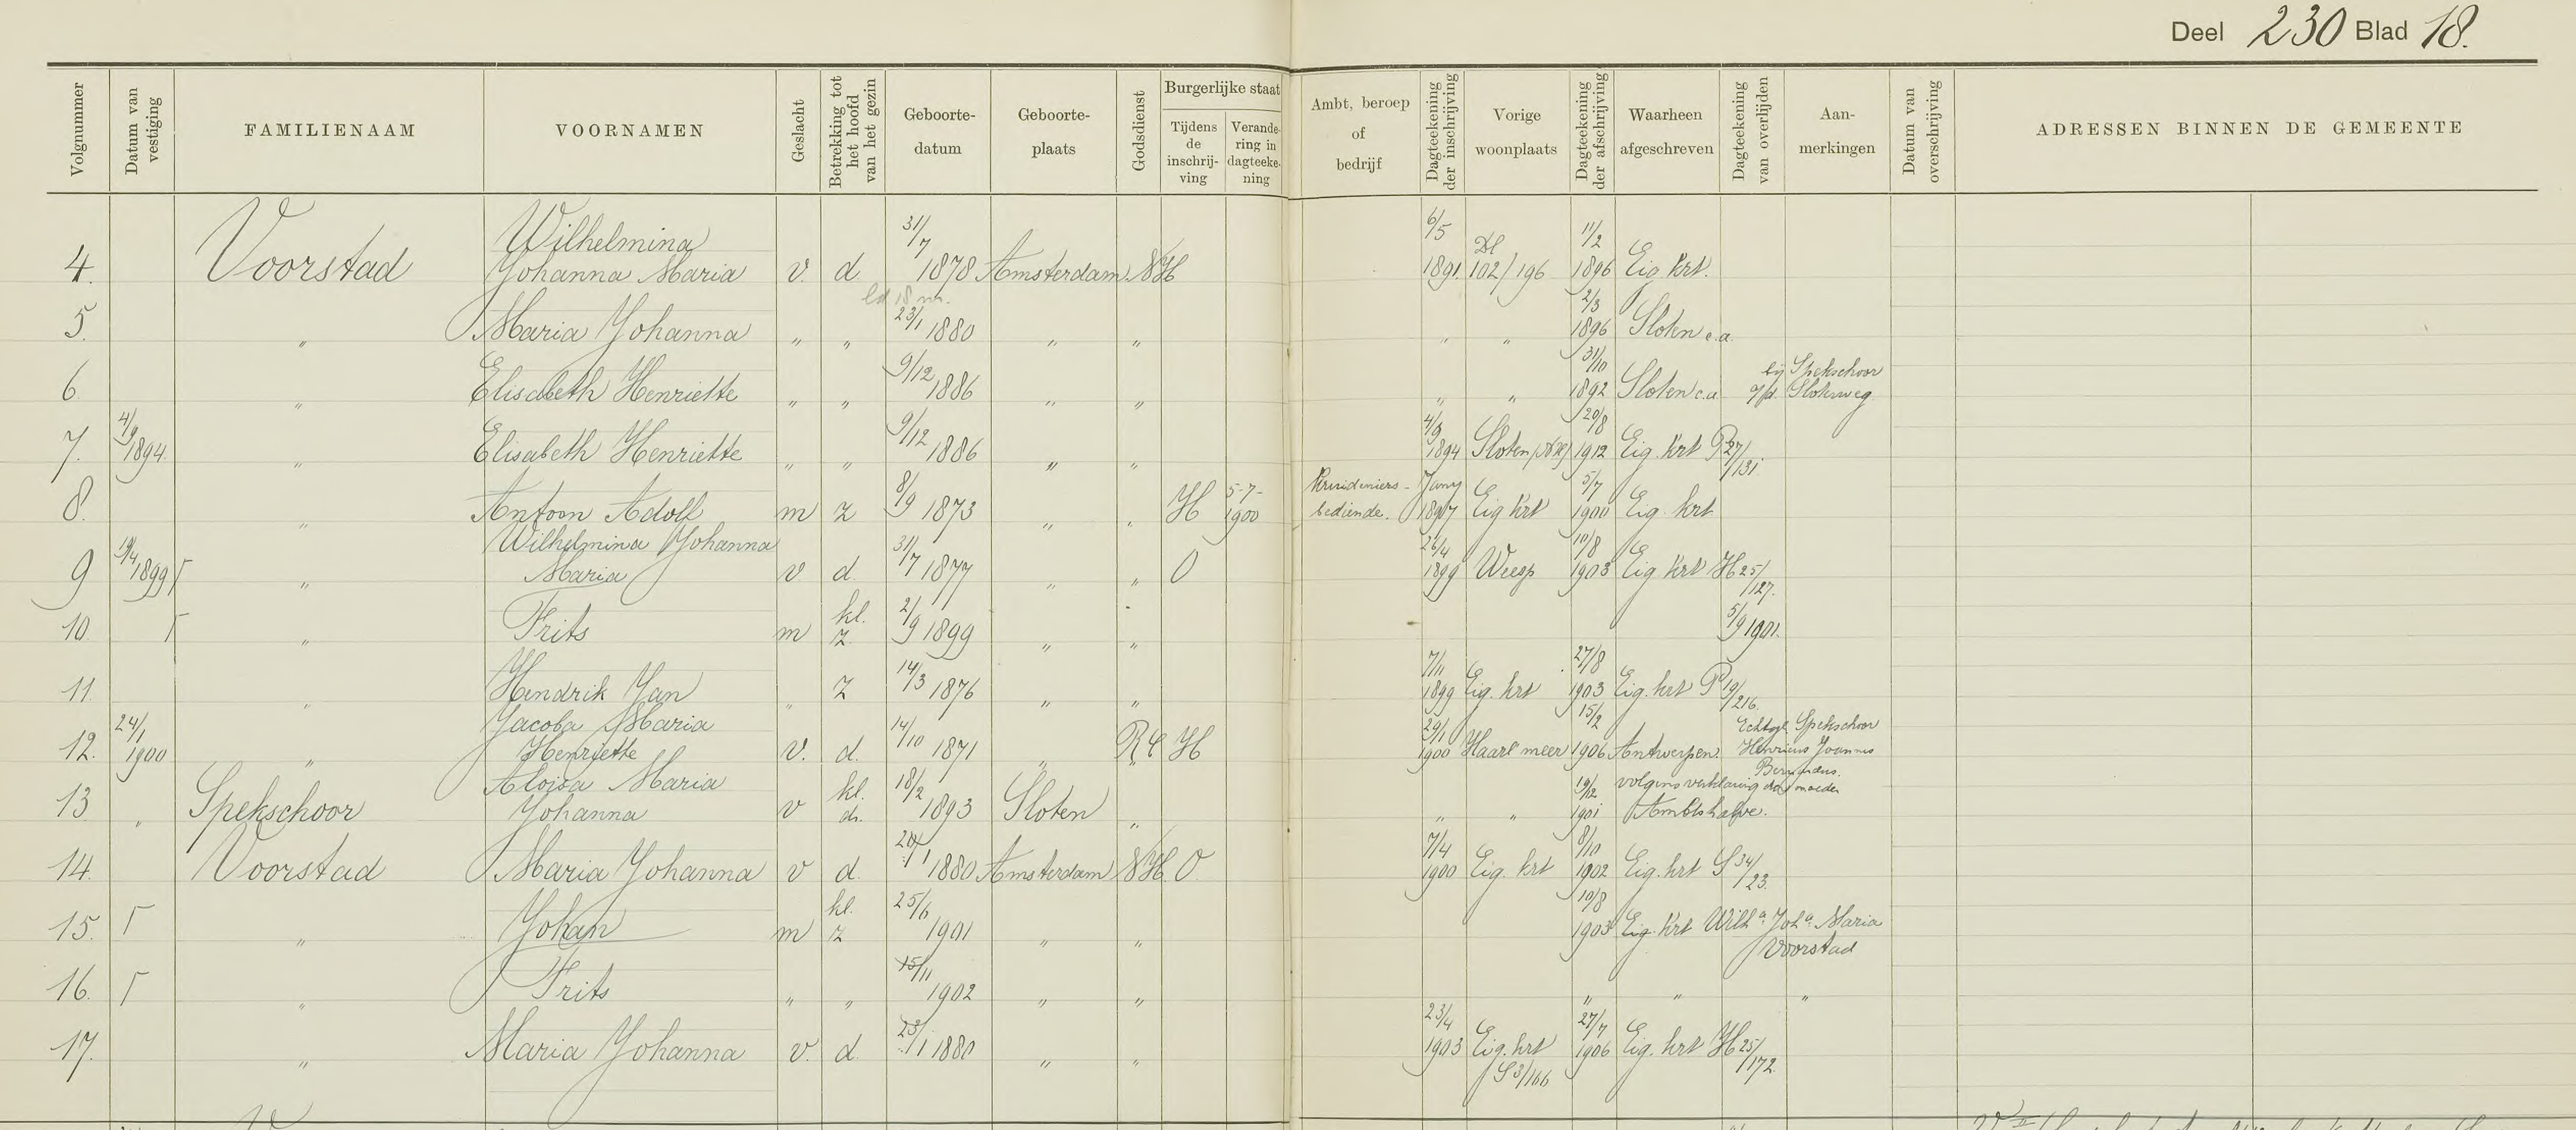 Deel 230 Blad 18.
Volgnummer
Datum van vestiging
FAMILIENAAM
VOORNAMEN
Geslacht
Betrekking tot het hoofd van het gezin
Geboorte-datum
Geboorte-plaats
Godsdienst
Burgerlijke staat
Tijdens de inschrij-ving
Verande-ring in dagteeke-ning
Ambt, beroep of bedrijf
Dagteekening der inschrijving
Vorige woonplaats
Dagteekening der afschrijving
Waarheen afgeschreven
Dagteekening van overlijden
Aan-merkingen
Datum van overschrijving
ADRESSEN BINNEN DE GEMEENTE
4. Voorstad Wilhelmina Johanna Maria v. d 31/7 1878 Amsterdam NH 6/5 1891. Dl 102/196 11/2 1896 Eig krt.
5. " Maria Johanna " " 23/1 1880 " " " " 2/3 1896 Sloten c.a.
6 " Elisabeth Henriette " " 9/12 1886 " " " " 31/10 1892 Sloten c.a. bij Spekschoor a/d. Slotenweg
7. 4/9 1894. " Elisabeth Henriette " " 9/12 1886 " " 4/9 1894 Sloten (NH) 20/8 1912 Eig. krt P 27/131
8. " Antoon Adolf m z 8/9 1873 " " H 5-7-1900 Kruideniers-bediende. Jany 1897 Eig krt 5/7 1900 Eig. krt
9 19/4 1899 " Wilhelmina Johanna Maria v d. 31/7 1877 " " O 26/4 1899 Weesp 10/8 1903 Eig krt H 25/127.
10. " Frits m kl. z. 2/9 1899 " " 5/9 1901.
11. " Hendrik Jan " z 14/3 1876 " " 7/11 1899 Eig. krt 27/8 1903 Eig. krt P 19/216.
12. 24/1 1900 " Jacoba Maria Henriette v. d. 14/10 1871 " RC H 29/1 1900 Haarl meer 15/2 1906 Antwerpen. Echtg. Spekschoor Henricus Joannes
13 " Spekschoor Aloisa Maria Johanna v kl. d. 18/2 1893 Sloten " " " 19/12 1901 volgens verklaring der moeder Ambtshalve.
14. Voorstad Maria Johanna v d /1 1880 Amsterdam NH O 7/4 1900 Eig. krt 8/10 1902 Eig. krt S 34/23.
15. " Johan m kl. z 25/6 1901 " " 10/8 1903 Eig. krt Wilha Joha Maria Voorstad
16. " Frits " " 15/11 1902 " " " " "
17. " Maria Johanna v. d. 23/1 1880 " " 23/4 1903 Eig. krt S 3/166 27/7 1906 Eig. krt H 25/172.